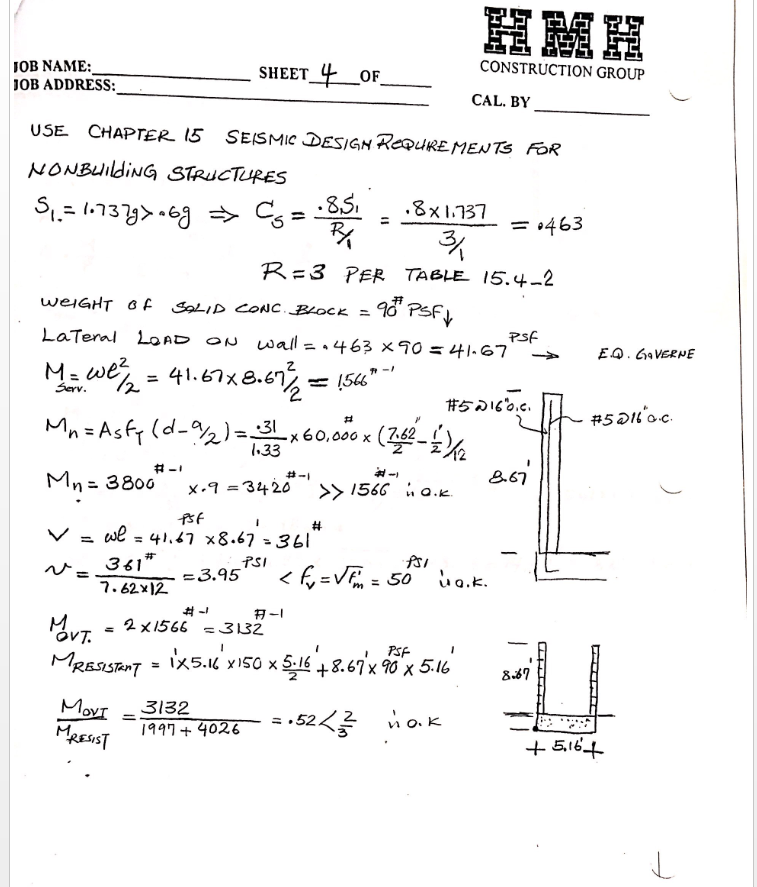 HMH
CONSTRUCTION GROUP
JOB NAME:
JOB ADDRESS:
SHEET 4 OF
CAL. BY
USE CHAPTER 15 SEISMIC DESIGN REQUIREMENTS FOR
NONBUILDING STRUCTURES
S₁ = 1.737g > .6g ⇒ Cs = .8S₁ / R/1 = .8 x 1.737 / 3/1 = .463
R = 3 PER TABLE 15.4-2
WEIGHT OF SOLID CONC. BLOCK = 90# PSF ↓
LATERAL LOAD ON wall = .463 x 90 = 41.67 PSF → E.Q. GOVERNE
M serv. = wl²/2 = 41.67 x 8.67²/2 = 1566 "-'
#5 @ 16" o.c.
#5 @ 16" o.c.
Mn = As fy (d - a/2) = .31/1.33 x 60,000# x (7.62"/2 - 1'/2)/12
8.67'
Mn = 3800 #-' x .9 = 3420 #-' >> 1566 #-' ∴ O.K.
V = wl = 41.67 PSF x 8.67' = 361#
v = 361# / 7.62 x 12 = 3.95 PSI < fv = √f'm = 50 PSI ∴ O.K.
M OVT. = 2 x 1566 #-' = 3132 #-'
M RESISTENT = 1' x 5.16' x 150 x 5.16'/2 + 8.67' x 90 PSF x 5.16'
8.67'
M OVT / M RESIST = 3132 / 1997 + 4026 = .52 < 2/3 ∴ O.K
5.16'